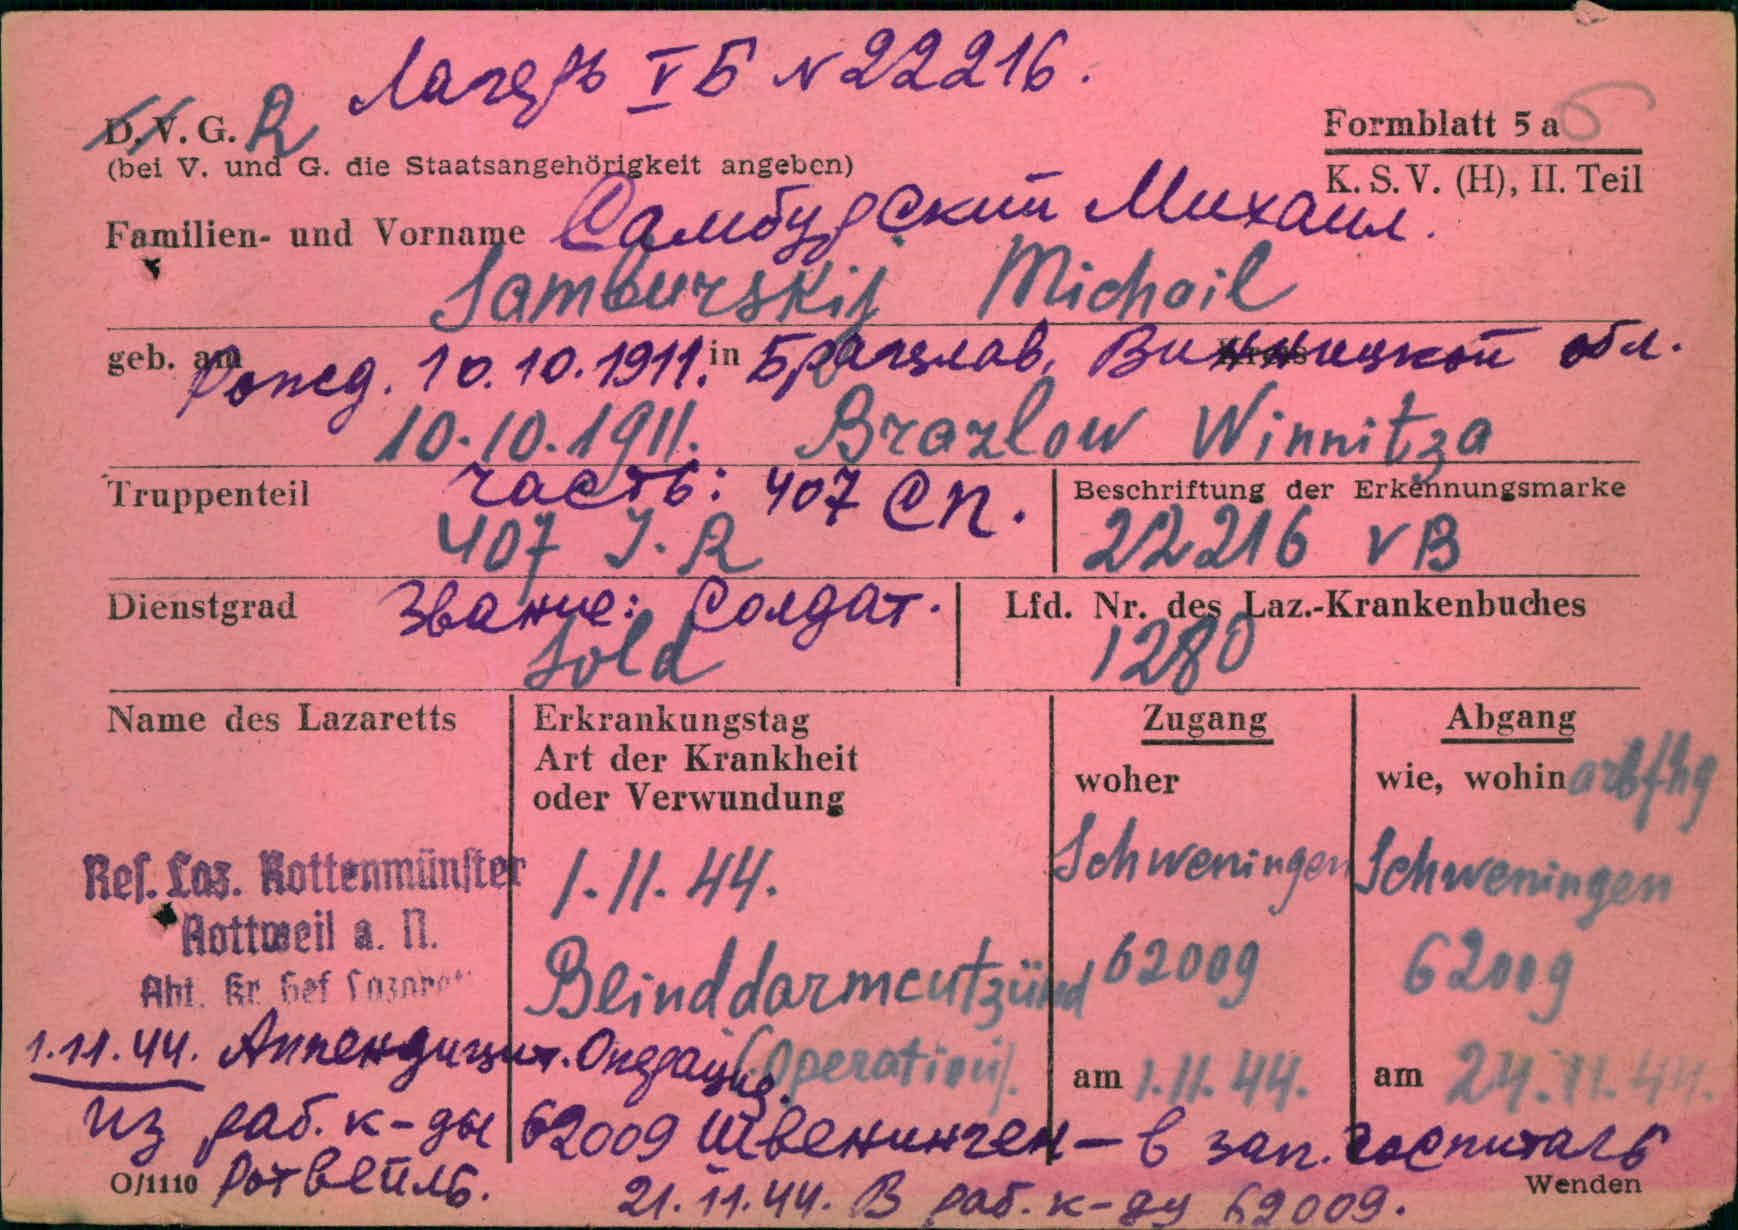 Лагерь V Б № 22216.
D. V. G. R
Formblatt 5 a
(bei V. und G. die Staatsangehörigkeit angeben)
K. S. V. (H), II. Teil
Familien- und Vorname Самбурский Михаил.
Samburskij Michail
geb. am Рожд. 10.10.1911. in Брацлав, Kreis Винницкой обл.
10.10.1911. Brazlow Winnitza
Truppenteil часть: 407 СП. Beschriftung der Erkennungsmarke
407 J.R 22216 VB
Dienstgrad Звание: Солдат. Lfd. Nr. des Laz.-Krankenbuches
Sold 1280
Name des Lazaretts
Erkrankungstag
Art der Krankheit
oder Verwundung
Zugang
woher
Abgang
wie, wohin arbfhg
Res. Laz. Rottenmünster
Rottweil a. N.
Abt. Kr. Gef. Lazaret
1.11.44.
Blinddarmentzünd
(Operation).
Schweningen
62009
am 1.11.44.
Schweningen
62009
am 24.11.44.
1.11.44. Аппендицит. Операция.
из раб. к-ды 62009 Швенинген – в зап. госпиталь
O/1110 Ротвейль.
Wenden
21.11.44. В раб. к-ду 62009.